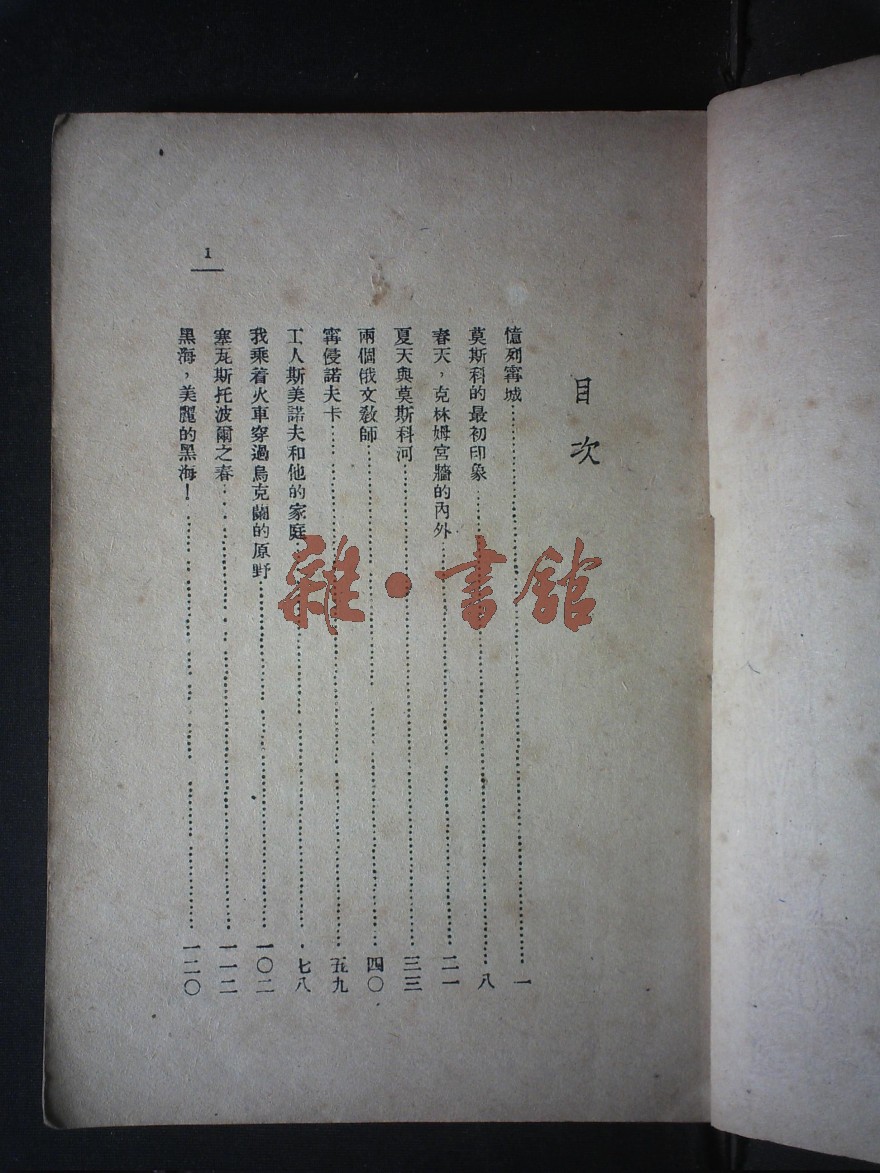 目次
憶列寗城……一
莫斯科的最初印象……八
春天，克林姆宮牆的內外……二一
夏天與莫斯科河……三三
兩個俄文教師……四〇
寗侵諾夫卡……五九
工人斯美諾夫和他的家庭……七八
我乘着火車穿過烏克蘭的原野……一〇二
塞瓦斯托波爾之春……一一二
黑海，美麗的黑海！……一二〇
1
雜·書館